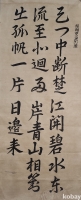 天门中断楚江開碧水东
流至此迴两岸青山相对
出孤帆一片日邊来